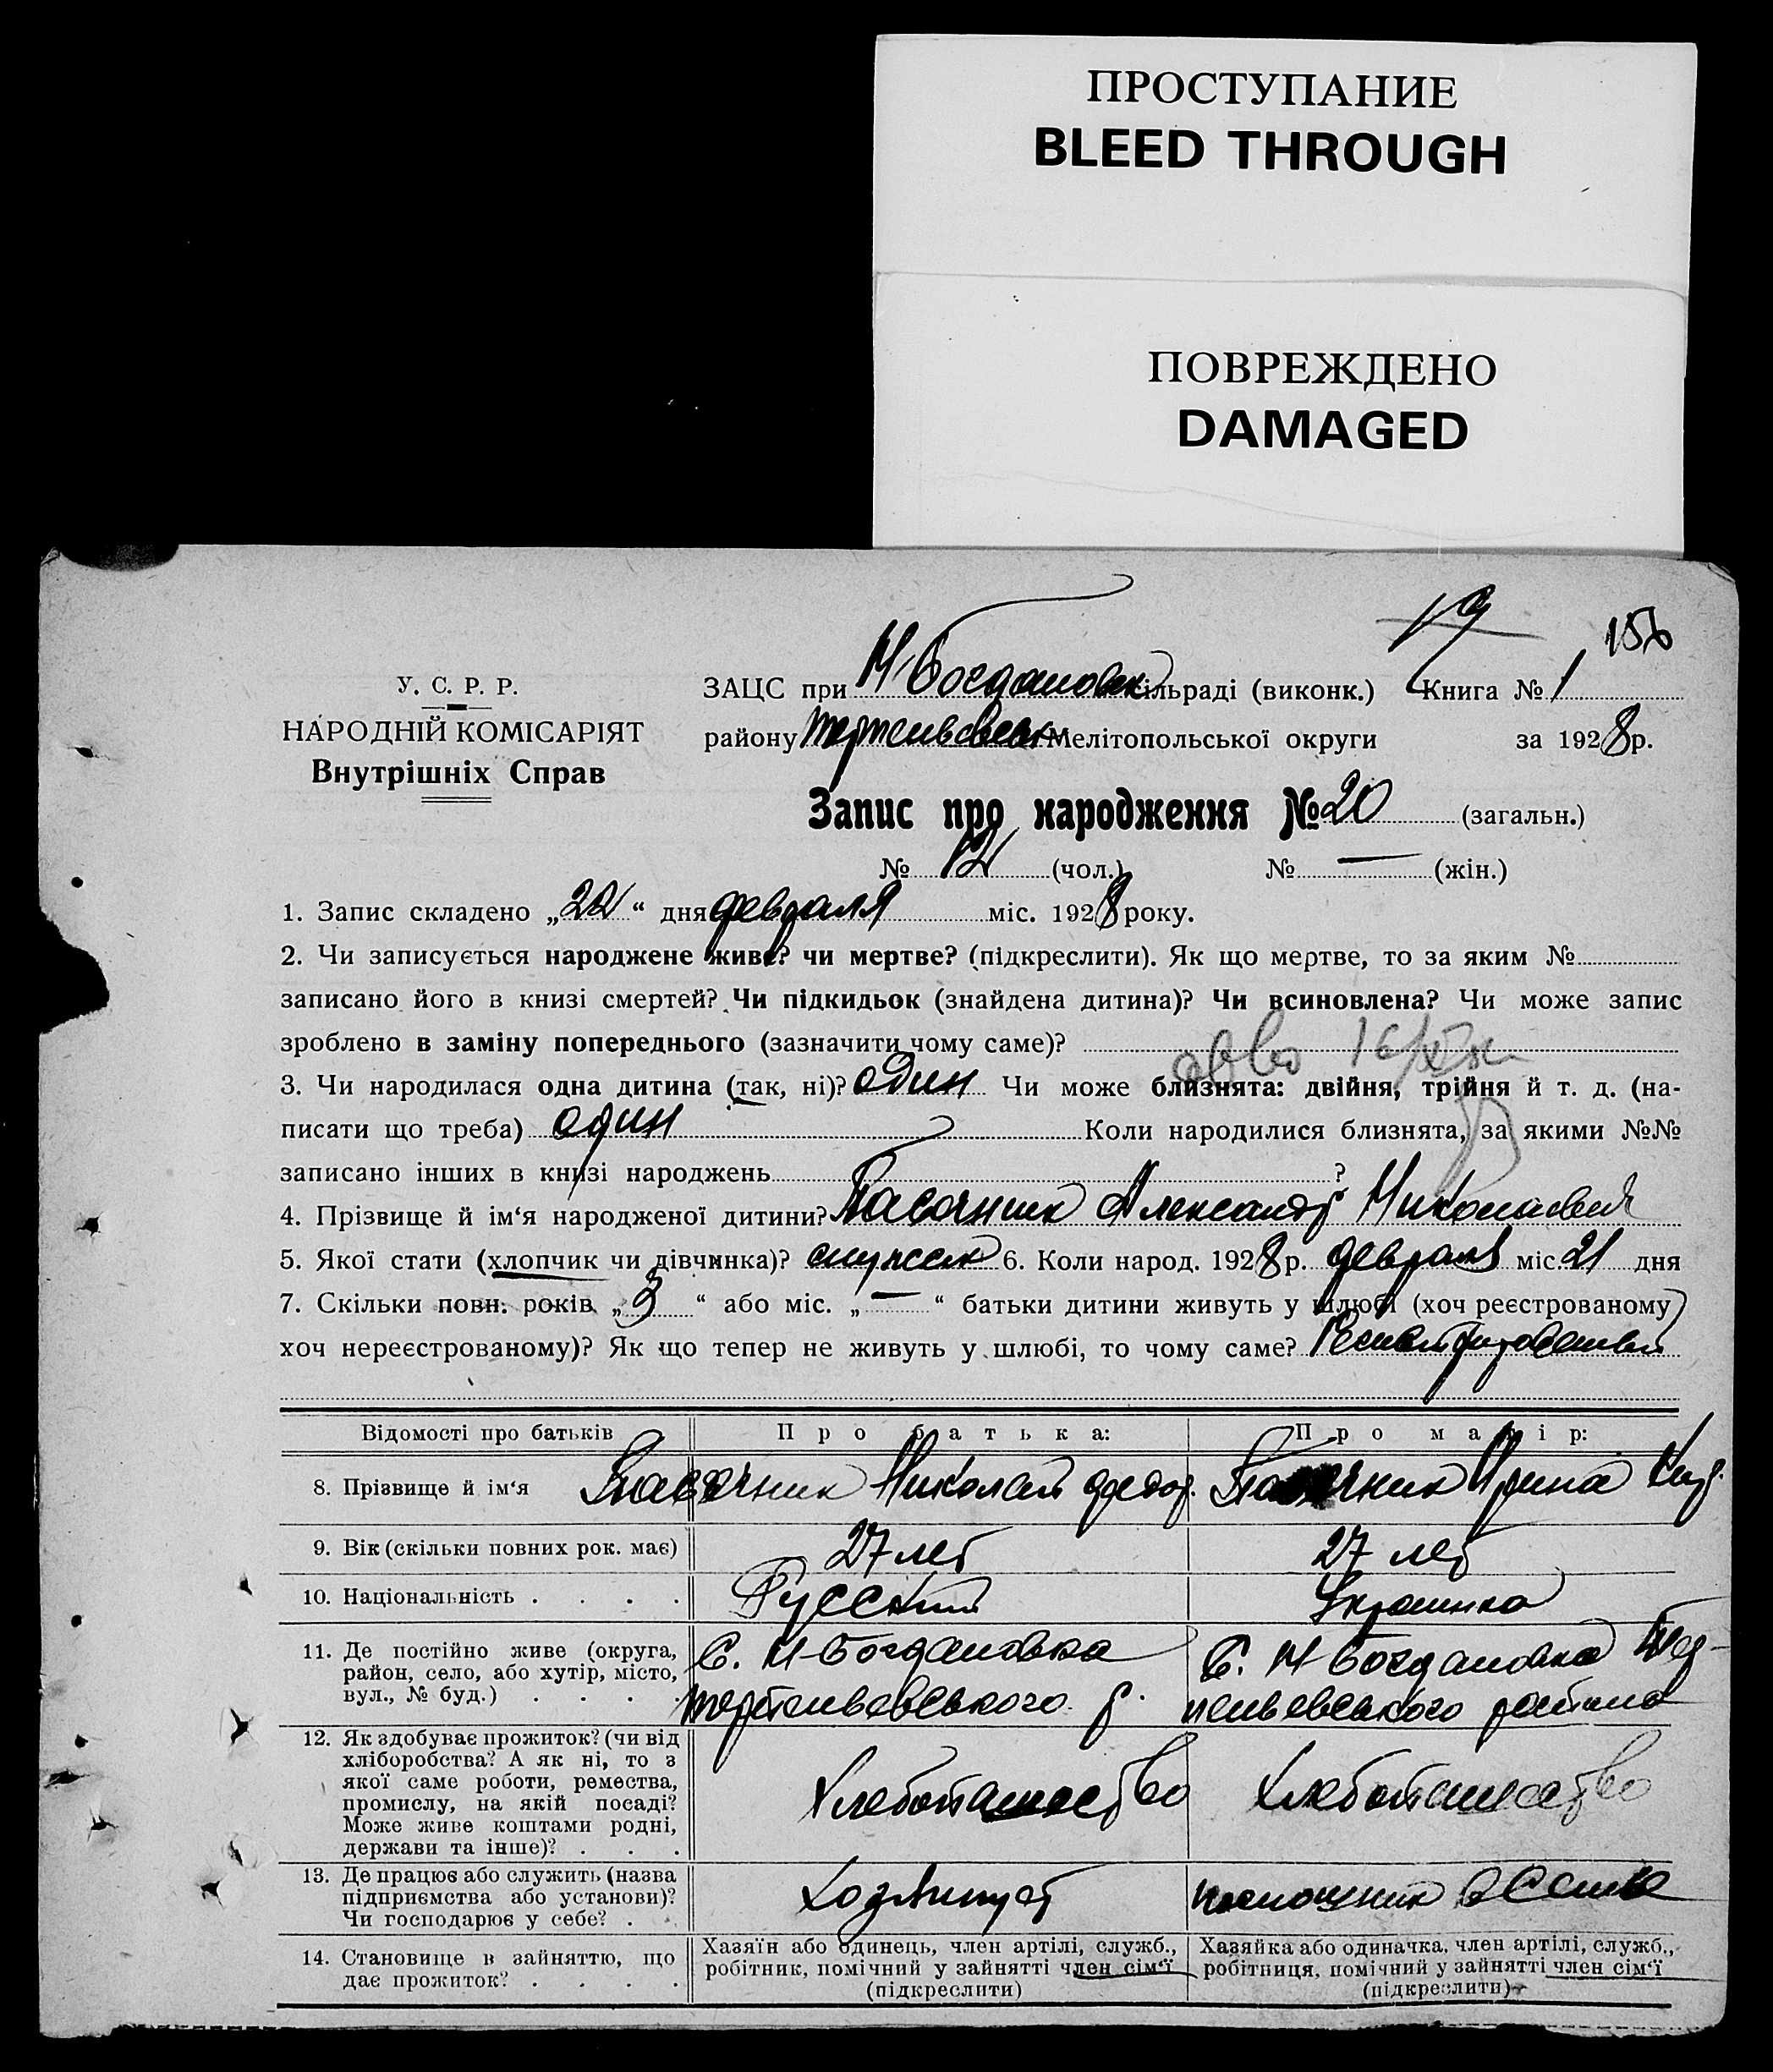 ПРОСТУПАНИЕ
BLEED THROUGH
ПОВРЕЖДЕНО
DAMAGED
19
156
У. С. Р. Р.
НАРОДНІЙ КОМІСАРІЯТ
Внутрішніх Справ
ЗАЦС при М Богдановск сільраді (виконк.) Книга № 1
району Мелітопольської округи за 1928 р.
Запис про народження № 20 (загальн.)
№ 12 (чол.) № — (жін.)
1. Запис складено „22“ дня февраля міс. 1928 року.
2. Чи записується народжене живе? чи мертве? (підкреслити). Як що мертве, то за яким №
записано його в книзі смертей? Чи підкидьок (знайдена дитина)? Чи всиновлена? Чи може запис
зроблено в заміну попереднього (зазначити чому саме)?
3. Чи народилася одна дитина (так, ні)? один Чи може близнята: двійня, трійня й т. д. (на-
писати що треба) один Коли народилися близнята, за якими №№
записано інших в книзі народжень ?
4. Прізвище й ім‘я народженої дитини? Пасечник Александр Николаевич
5. Якої стати (хлопчик чи дівчинка)? мужеск 6. Коли народ. 1928 р. февраля міс. 21 дня
7. Скільки повн. років „3“ або міс. „—“ батьки дитини живуть у шлюбі (хоч реєстрованому
хоч нереєстрованому)? Як що тепер не живуть у шлюбі, то чому саме?
Відомості про батьків Про батька: Про матір:
8. Прізвище й ім‘я Пасечник Николай Федор. Пасечник Ирина
9. Вік (скільки повних рок. має) 27 лет 27 лет
10. Національність . . . . Русский Украинка
11. Де постійно живе (округа,
район, село, або хутір, місто,
вул., № буд.) . . . .
С. М-Богдановка
р.
С. М Богдановка
района
12. Як здобуває прожиток? (чи від
хліборобства? А як ні, то з
якої саме роботи, ремества,
промислу, на якій посаді?
Може живе коштами родні,
держави та інше)? . . .
Хлебопашество Хлебопашество
13. Де працює або служить (назва
підприємства або установи)?
Чи господарює у себе? .
Хозяинует помощник в семье
14. Становище в зайняттю, що
дає прожиток? . . . .
Хазяїн або одинець, член артілі, служб.,
робітник, помічний у зайнятті член сім‘ї
(підкреслити)
Хазяйка або одиначка, член артілі, служб.,
робітниця, помічний у зайнятті член сім‘ї
(підкреслити)